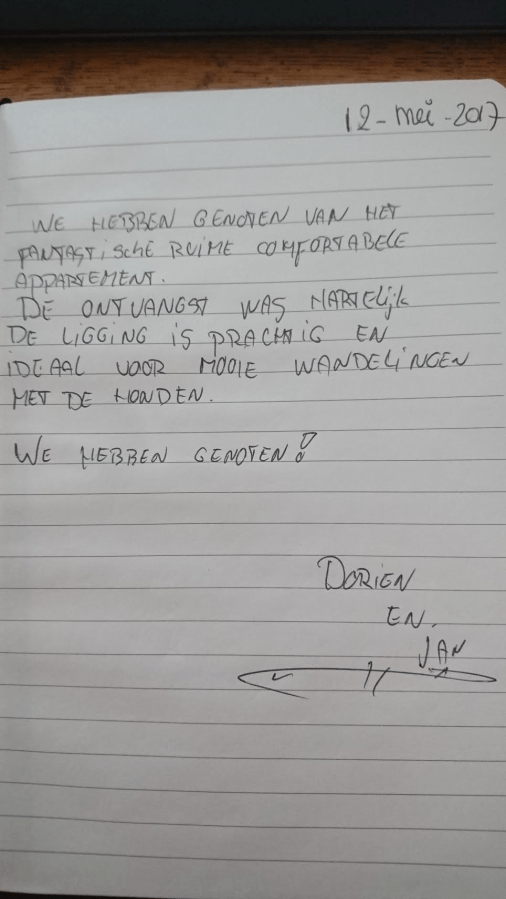 12-mei-2017
WE HEBBEN GENOTEN VAN HET
FANTASTISCHE RUIME COMFORTABELE
APPARTEMENT.
DE ONTVANGST WAS HARTELIJK
DE LIGGING IS PRACHTIG EN
IDEAAL VOOR MOOIE WANDELINGEN
MET DE HONDEN.
WE HEBBEN GENOTEN!
DORIEN
EN.
JAN